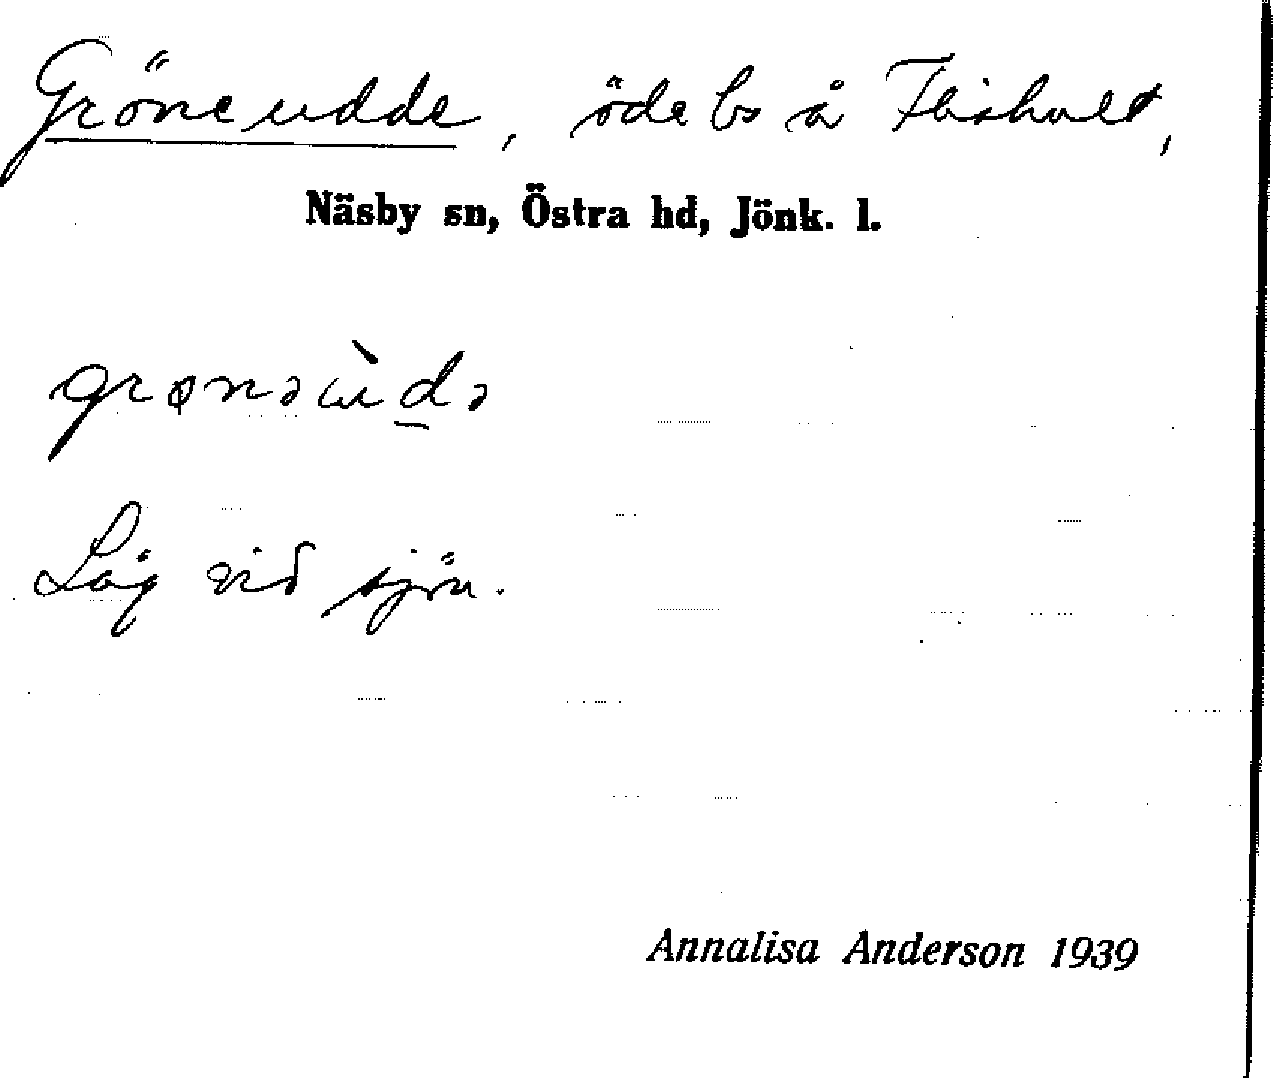 Gröneudde, öde bs å Flisholt,
Näsby sn, Östra hd, Jönk. l.
grønəùdə
Låg vid sjön.
Annalisa Anderson 1939